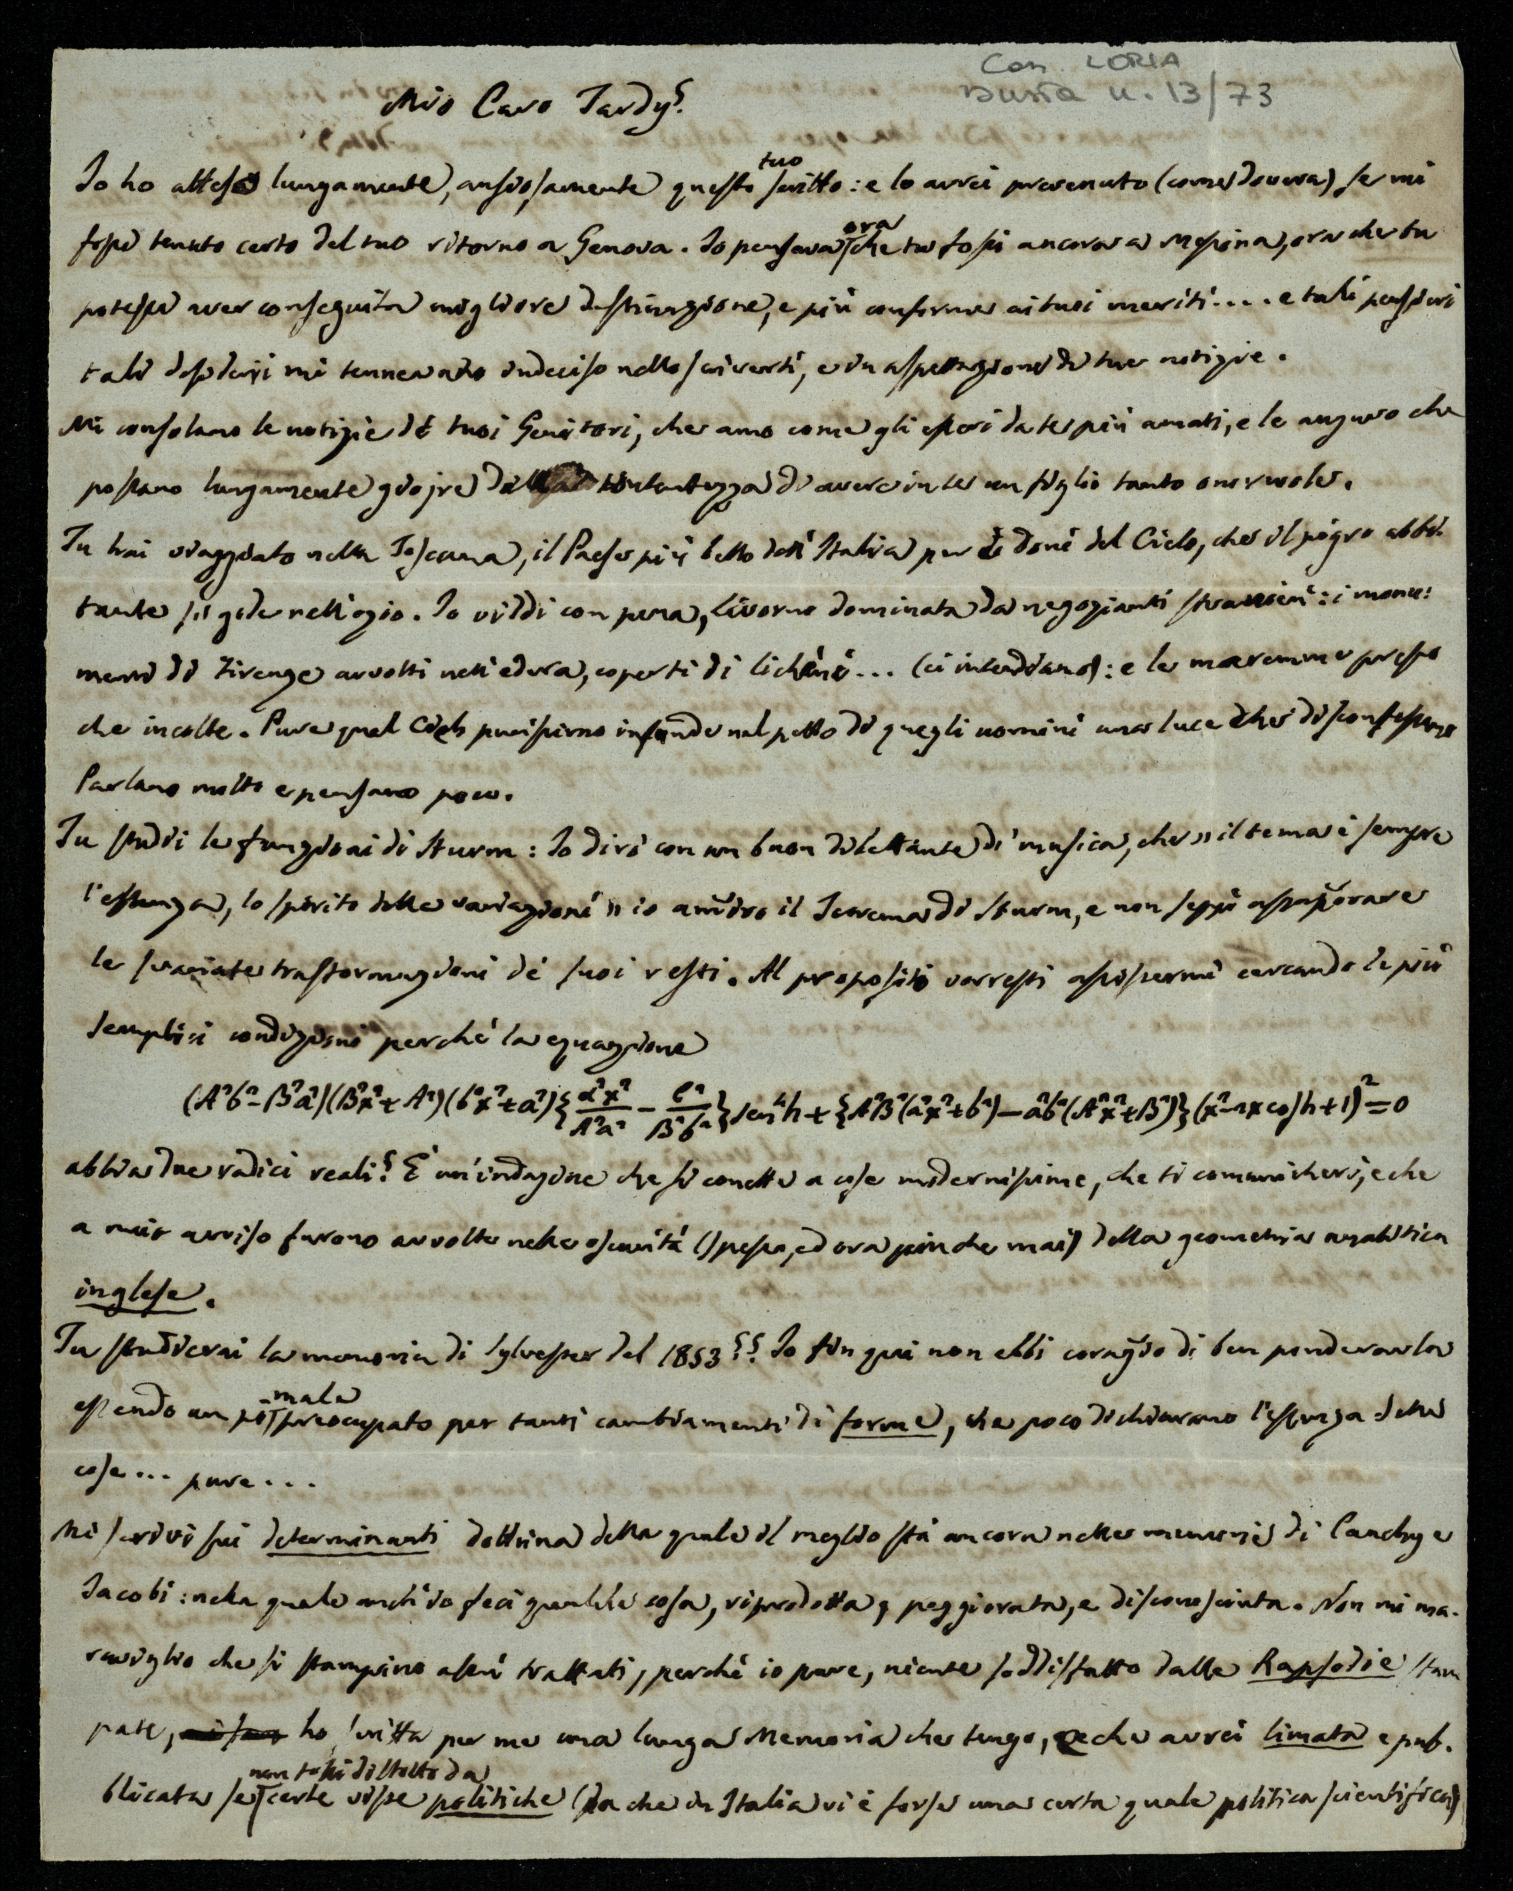 Con. LORIA
Busta n. 13/73
Mio Caro Tardy.
Io ho atteso lungamente, ansiosamente questo tuo scritto: e lo avrei prevenuto (come doveva) se mi
fossi tenuto certo del tuo ritorno a Genova. Io pensava ora che tu fossi ancora a Messina, ora che tu
potessi aver conseguita migliore destinazione, e più conforme ai tuoi meriti.... e tali pensieri
tali desiderj mi tennero indeciso nello scriverti, e in aspettazione di tue notizie.
Mi consolano le notizie dé tuoi Genitori, che amo come gli esseri da te più amati, e le auguro che
possano lungamente giojre della contentezza di avere in te un figlio tanto onorevole.
Tu hai viaggiato nella Toscana, il Paese più bello dell'Italia per i doni del Cielo, che il pigro abbi-
tante si gode nell'ozio. Io viddi con pena, Livorno dominata da negozianti stranieri: i monu:
menti di Firenze avvolti nell'edera, coperti di licheni... (ci intendiamo): e le maremme presso
che incolte. Pure quel Cielo purissimo infonde nel petto di quegli uomini una luce che disconoscono
Parlano molto e pensano poco.
Tu studi le funzioni di Sturm: Io dirò con un buon dilettante di musica, che » il tema è sempre
l'essenza, lo spirito delle variazioni » io ammiro il Teorema di Sturm, e non seppi assaporare
le svariate trasformazioni dé suoi resti. Al proposito vorresti assistermi cercando le più
semplici condizioni perché la equazione
(A²b²-B²a²)(B²x²+A²)(b²x²+a²){α²x²/A²a² - C²/B²b²}sen⁴h+{A²B²(a²x²+b²)-a²b²(A²x²+B²)}(x²-2x cos h+1)²=0
abbia due radici reali? È un'indagine che si connette a cose modernissime, che ti comunicherò, e che
a mio avviso furono avvolte nelle oscurità (spesso, ed ora più che mai) della geometria analitica
inglese.
Tu studierai la memoria di Sylvester del 1853?? Io fin qui non ebbi coraggio di ben ponderarla
essendo un po male preocupato per tanti cambiamenti di forme, che poco dichiarano l'essenza delle
cose... pure...
Mi scrivi sui determinanti dottrina della quale il meglio stà ancora nelle memorie di Cauchy e
Jacobi: nella quale anch'io feci qualche cosa, riprodotta, peggiorata, e disconosciuta. Non mi ma-
raviglio che si stampino assai trattati, perché io pure, niente soddisfatto dalle Rapsodie stam
pate, ho scritta per me una lunga Memoria che tengo, e che avrei limata e pub-
blicata se non fossi distolto da certe viste politiche (da che in Italia vi è forse una certa quale politica scientifica)